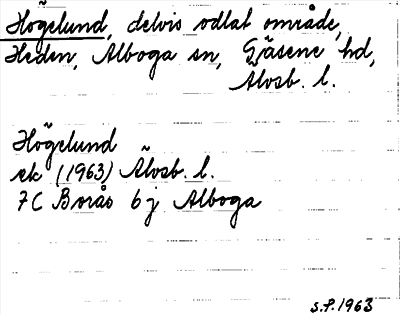 Högelund, delvis odlat område,
Heden, Alboga sn, Gäsene hd,
Älvsb. l.
Högelund
ek (1963) Älvsb. l.
7C Borås 6j Alboga
S.P. 1963